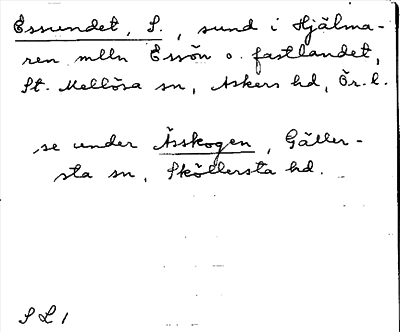 Essundet, S., sund i Hjälma-
ren mlln Essön o. fastlandet,
St. Mellösa sn, Askers hd, Ör. l.
se under Ässkogen, Gäller-
sta sn, Sköllersta hd.
S L 1